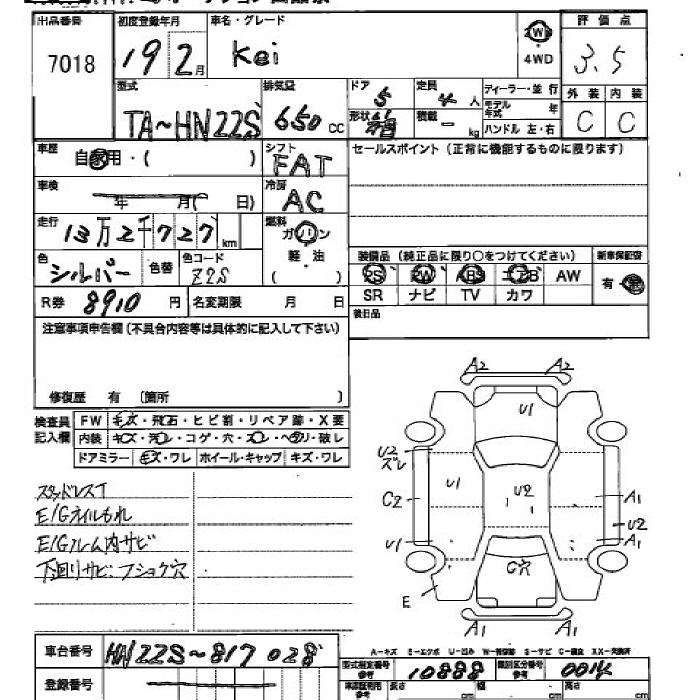 出品番号 初度登録年月 車名・グレード 評価点
7018 19 2月 Kei W 4WD 3.5
型式 排気量 ドア 定員 ディーラー・並行 外装 内装
TA~HN22S 650CC 5 4人 モデル年式 年 C C
形状 積載 - kg ハンドル 左・右
車歴 自家用・( ) シフト FAT セールスポイント(正常に機能するものに限ります)
車検 年 月( 日) 冷房 AC
走行 13万2千727km 燃料 ガソリン
軽・油
( )
色 シルバー 色替 色コード Z2S
装備品(純正品に限り○をつけてください) 新車保証書
PS PW ABS エアB AW 有・無
SR ナビ TV カワ
R券 8910円 名変期限 月 日 後日品
注意事項申告欄(不具合内容等は具体的に記入して下さい)
修復歴 有 〔箇所 〕
検査員記入欄 FW キズ・飛石・ヒビ割・リペア跡・X要
内装 キズ・汚レ・コゲ・穴・スレ・ヘタリ・破レ
ドアミラー キズ・ワレ ホイール・キャップ キズ・ワレ
スタッドレスT
E/Gオイルもれ
E/Gルーム内サビ
下回リサビ・フショク穴
A2 A2
U1
U2
ズレ
U1 U2
C2 A1
U2
U1 A1
G穴
E
A1 A1
A-キズ E-エクボ U-凹み W-補修跡 S-サビ C-腐食 XX-交換済
車台番号 HN22S~817028 型式指定番号 10888 類別区分番号 0014
登録番号 車検証記載 長さ cm 幅 cm 高さ cm